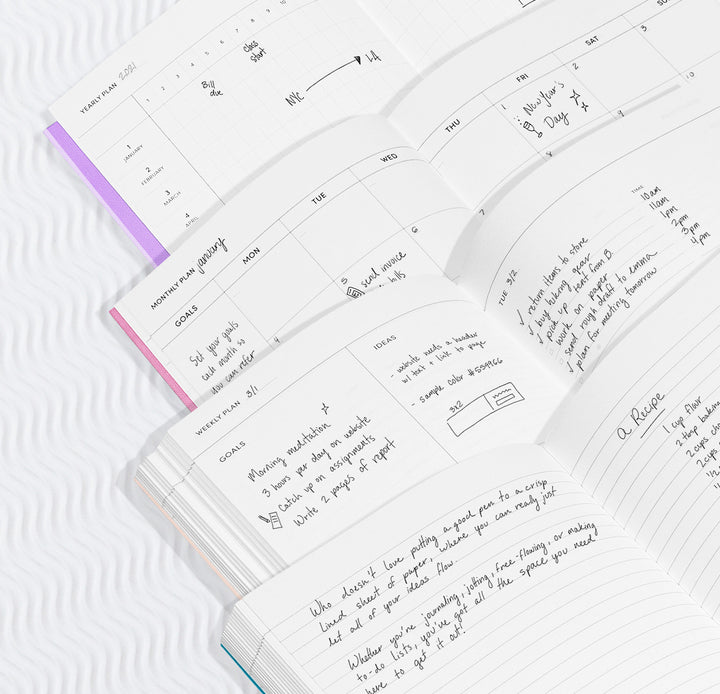 YEARLY PLAN 2021
1 2 3 4 5 6 7 8 9 10
class
start
Bill
due
NYC
LA
1
JANUARY
2
FEBRUARY
3
MARCH
4
APRIL
MONTHLY PLAN January
GOALS
MON
TUE
WED
THU
FRI
SAT
Set your goals
each month so
you can refer
4
5
send invoice
bills
6
7
1
New Year's
Day
2
3
8
9
10
WEEKLY PLAN 3/1
GOALS
Morning meditation
3 hours per day on website
Catch up on assignments
Write 2 pages of report
IDEAS
- website needs a header
w/ text + link to page
- sample color #559966
3x2
TUE 3/2
return items to store
buy hiking gear
pick up tent from B.
work on paper
send rough draft to emma
plan for meeting tomorrow
TIME
10am
11am
1pm
2pm
3pm
4pm
Who doesn't love putting a good pen to a crisp
lined sheet of paper, where you can ready just
let all of your ideas flow.
Whether you're journaling, jotting, free-flowing, or making
to-do lists, you've got all the space you need
here to get it out!
a Recipe
1 cup flour
2 tbsp
2 cups
2 cups